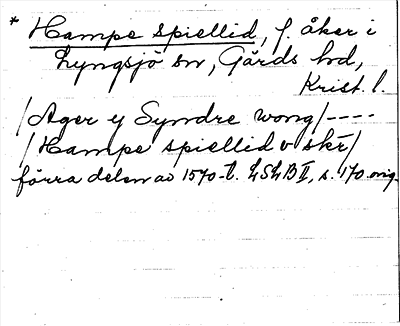 * Hampe spiellid, f. åker i
Lyngsjö sn, Gärds hd,
Krist. l.
/Ager y Syndre wong/----
/Hampe spiellid v skr/
förra delen av 1570-t. LSLB II, s. 170. orig.